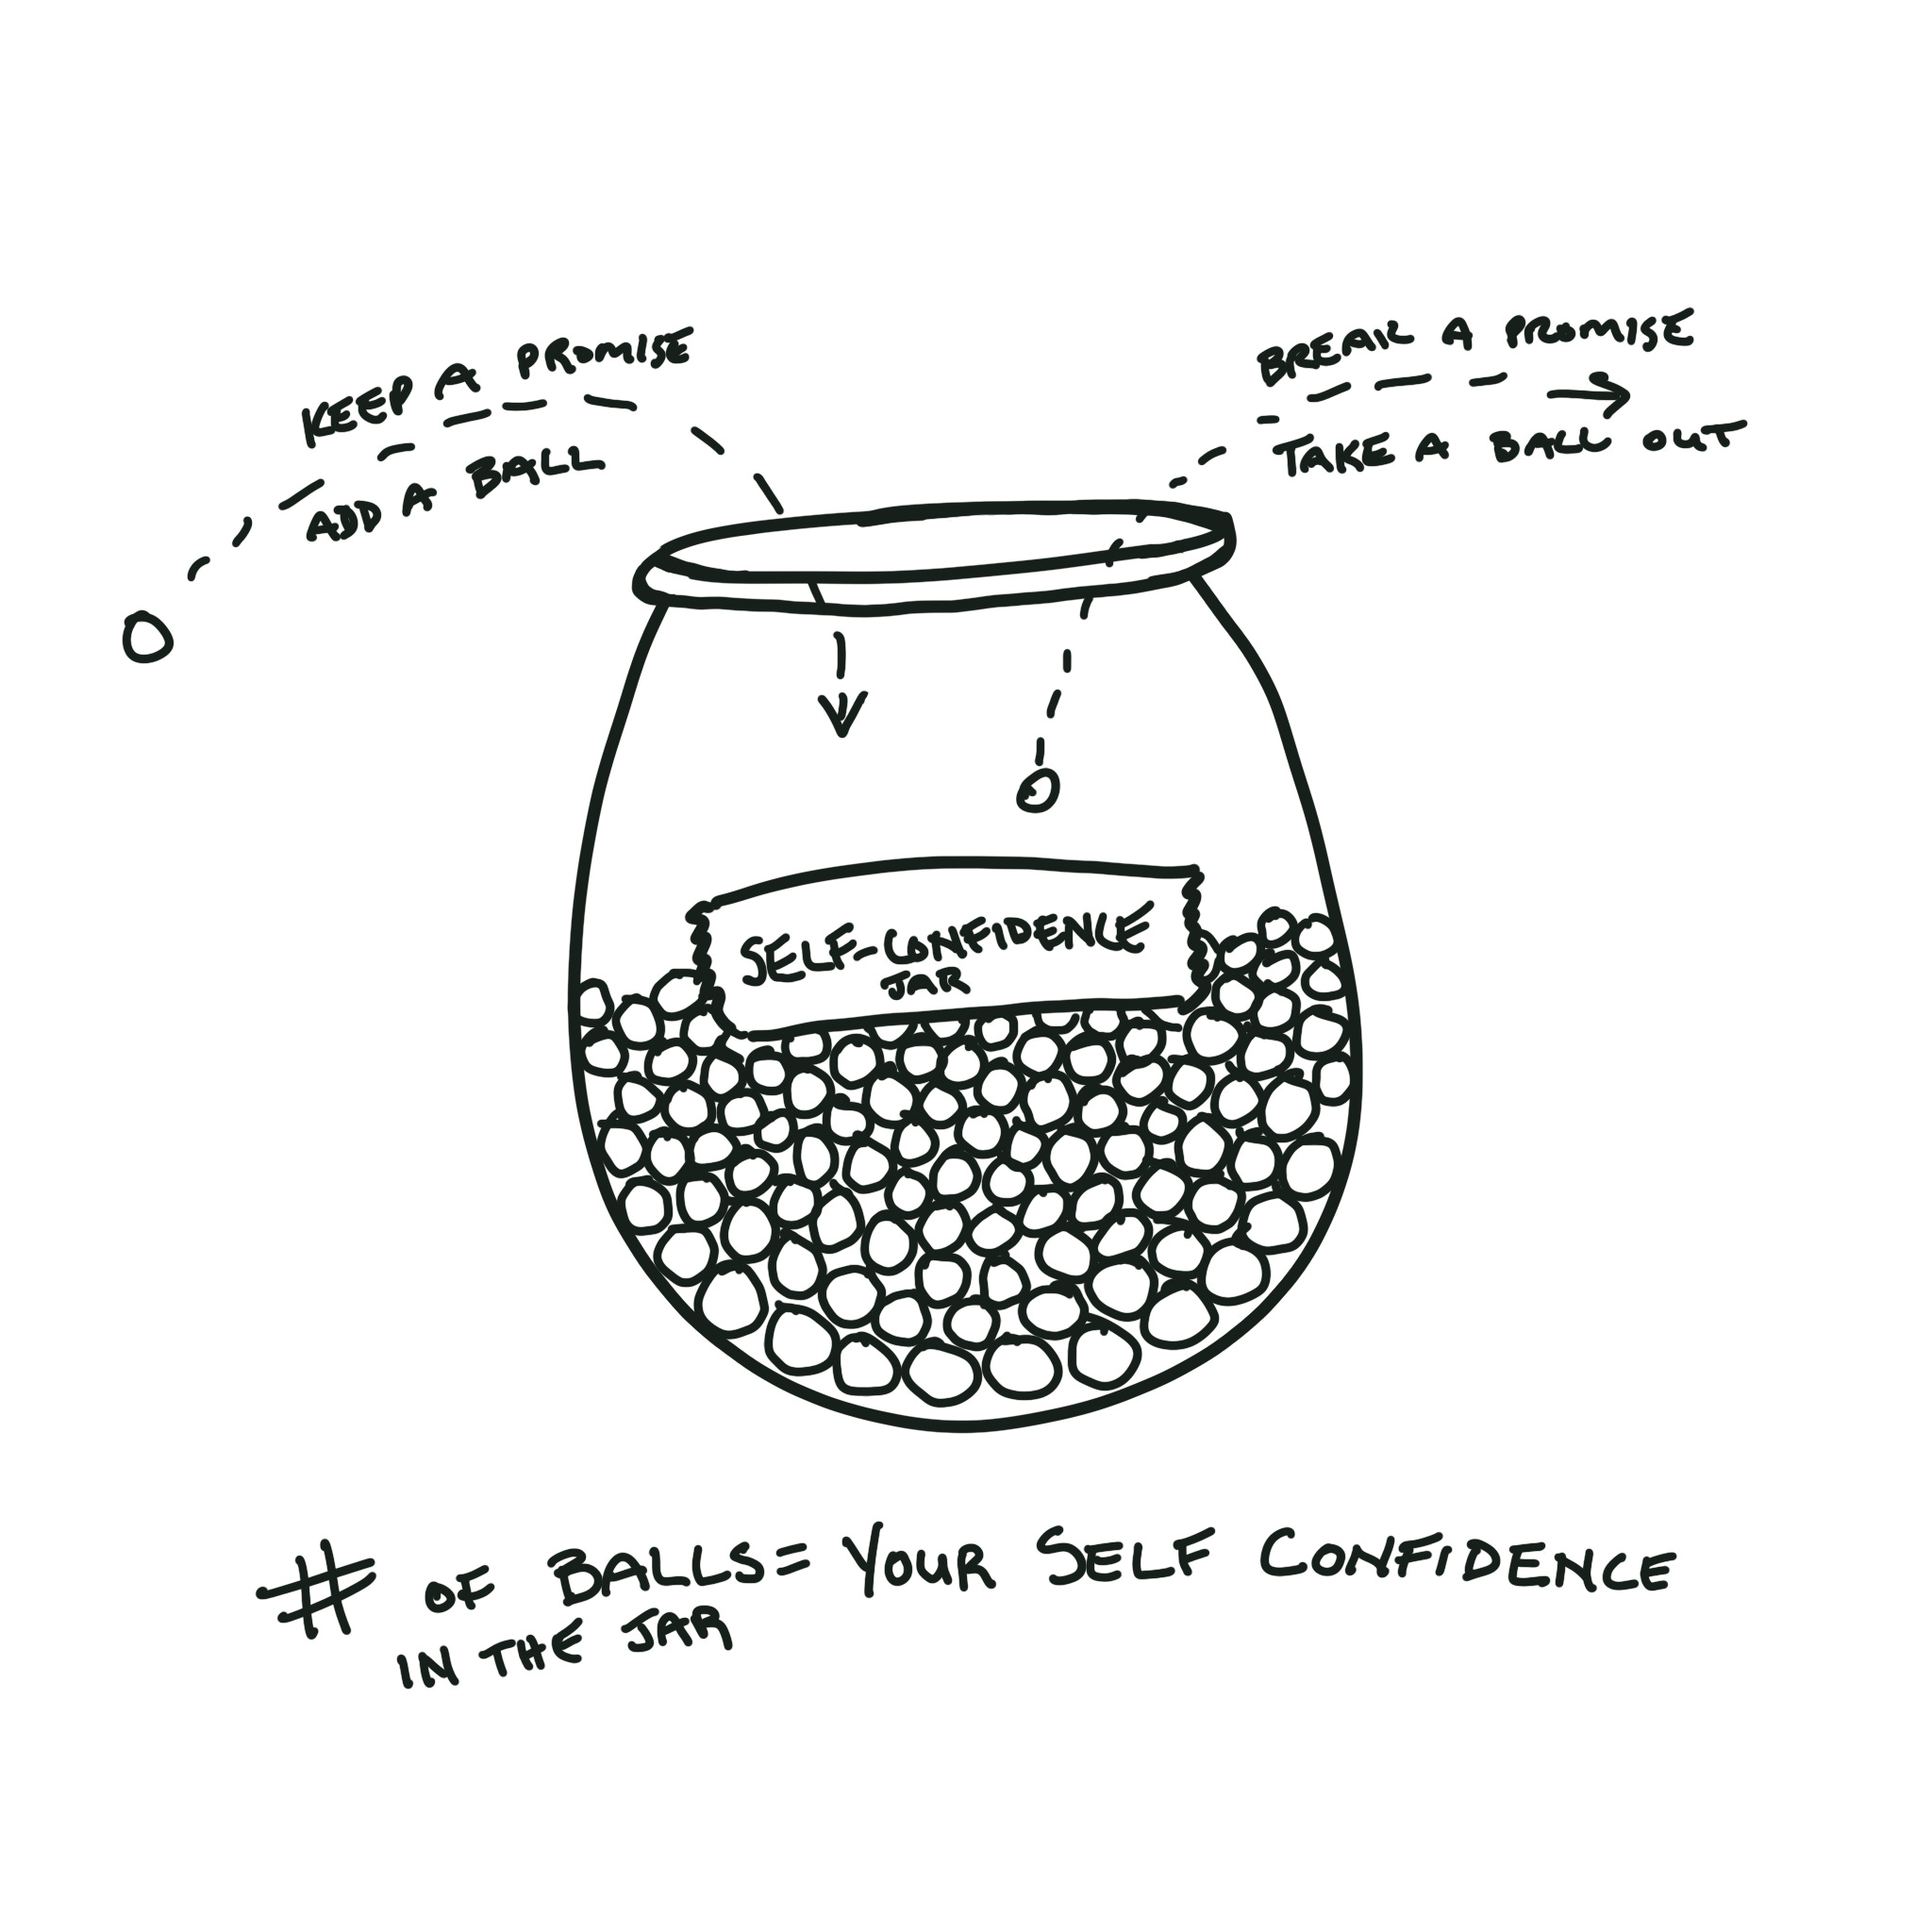 KEEP A PROMISE
ADD A BALL
BREAK A PROMISE
TAKE A BALL OUT
SELF-CONFIDENCE
JAR
# OF BALLS = YOUR SELF CONFIDENCE
IN THE JAR